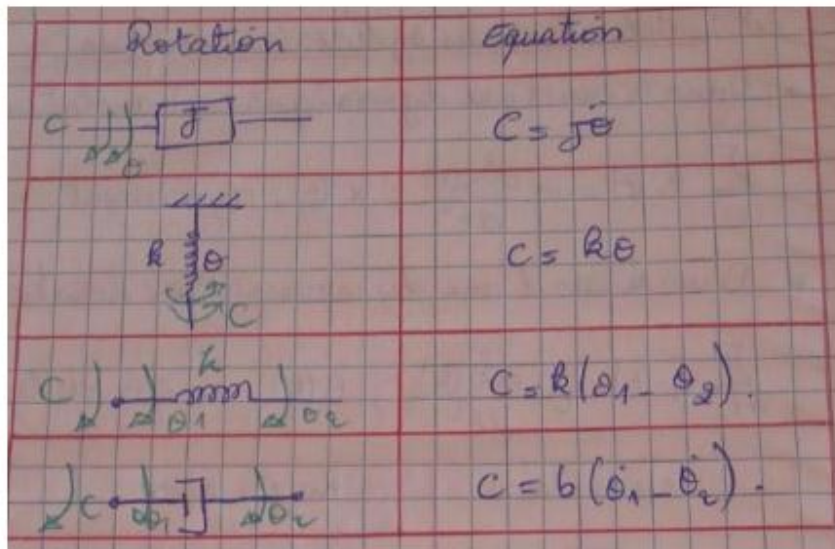 Rotation Equation
C J θ C = Jθ̈
k θ C C = kθ
C k θ1 θ2 C = k(θ1 - θ2).
C θ1 θ2 C = b(θ̇1 - θ̇2).